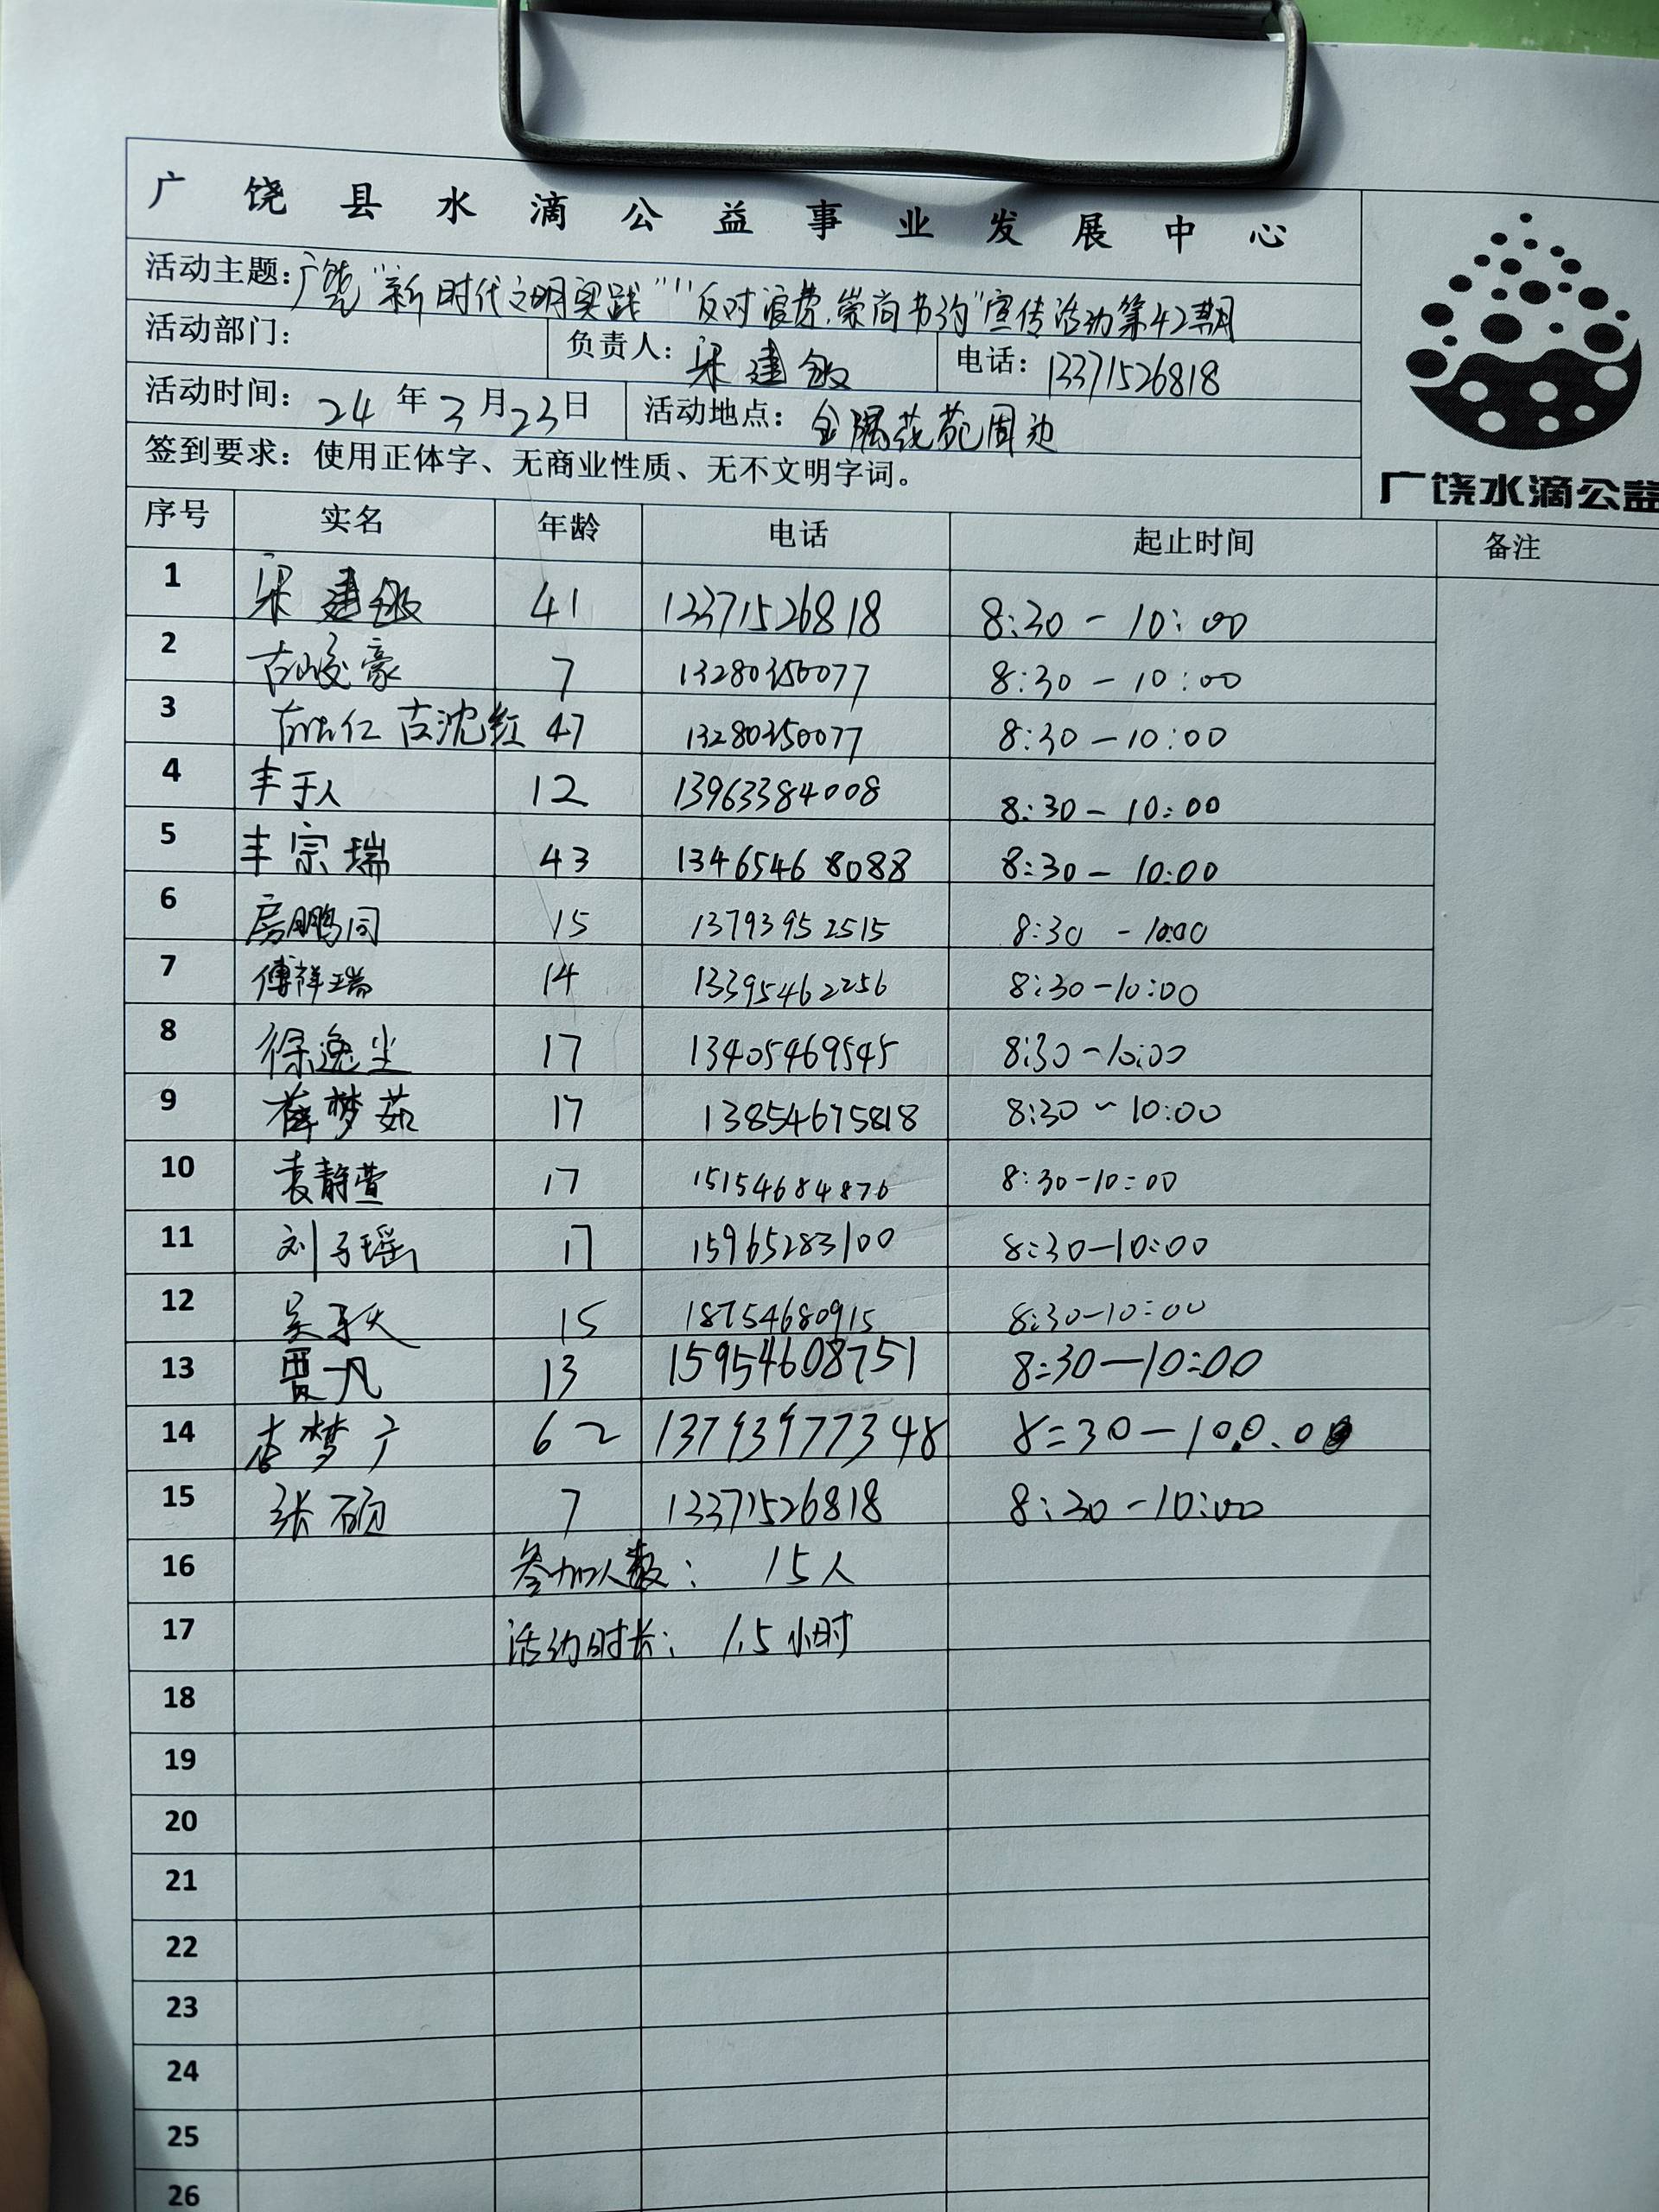 广饶县水滴公益事业发展中心
活动主题:广饶"新时代文明实践""反对浪费.崇尚节约"宣传活动第42期
活动部门: 负责人: 宋建敏 电话: 13371526818
活动时间: 24年3月23日 活动地点: 金隅花苑周边
签到要求: 使用正体字、无商业性质、无不文明字词。
广饶水滴公益
序号 实名 年龄 电话 起止时间 备注
1 宋建敏 41 13371526818 8:30-10:00
2 古峻豪 7 13280350077 8:30-10:00
3 古沈红 47 13280350077 8:30-10:00
4 丰于人 12 13963384008 8:30-10:00
5 丰宗瑞 43 13465468088 8:30-10:00
6 房鹏同 15 13793952515 8:30-10:00
7 傅祥瑞 14 13395462256 8:30-10:00
8 徐逸尘 17 13405469545 8:30-10:00
9 薛梦茹 17 13854675818 8:30~10:00
10 袁静萱 17 15154684876 8:30-10:00
11 刘子瑶 17 15965283100 8:30-10:00
12 吴 15 18754680915 8:30-10:00
13 贾一凡 13 15954608751 8:30-10:00
14 李梦广 62 13793977348 8:30-10
15 张硕 7 13371526818 8:30-10:00
16 参加人数: 15人
17 活动时长: 1.5小时
18
19
20
21
22
23
24
25
26